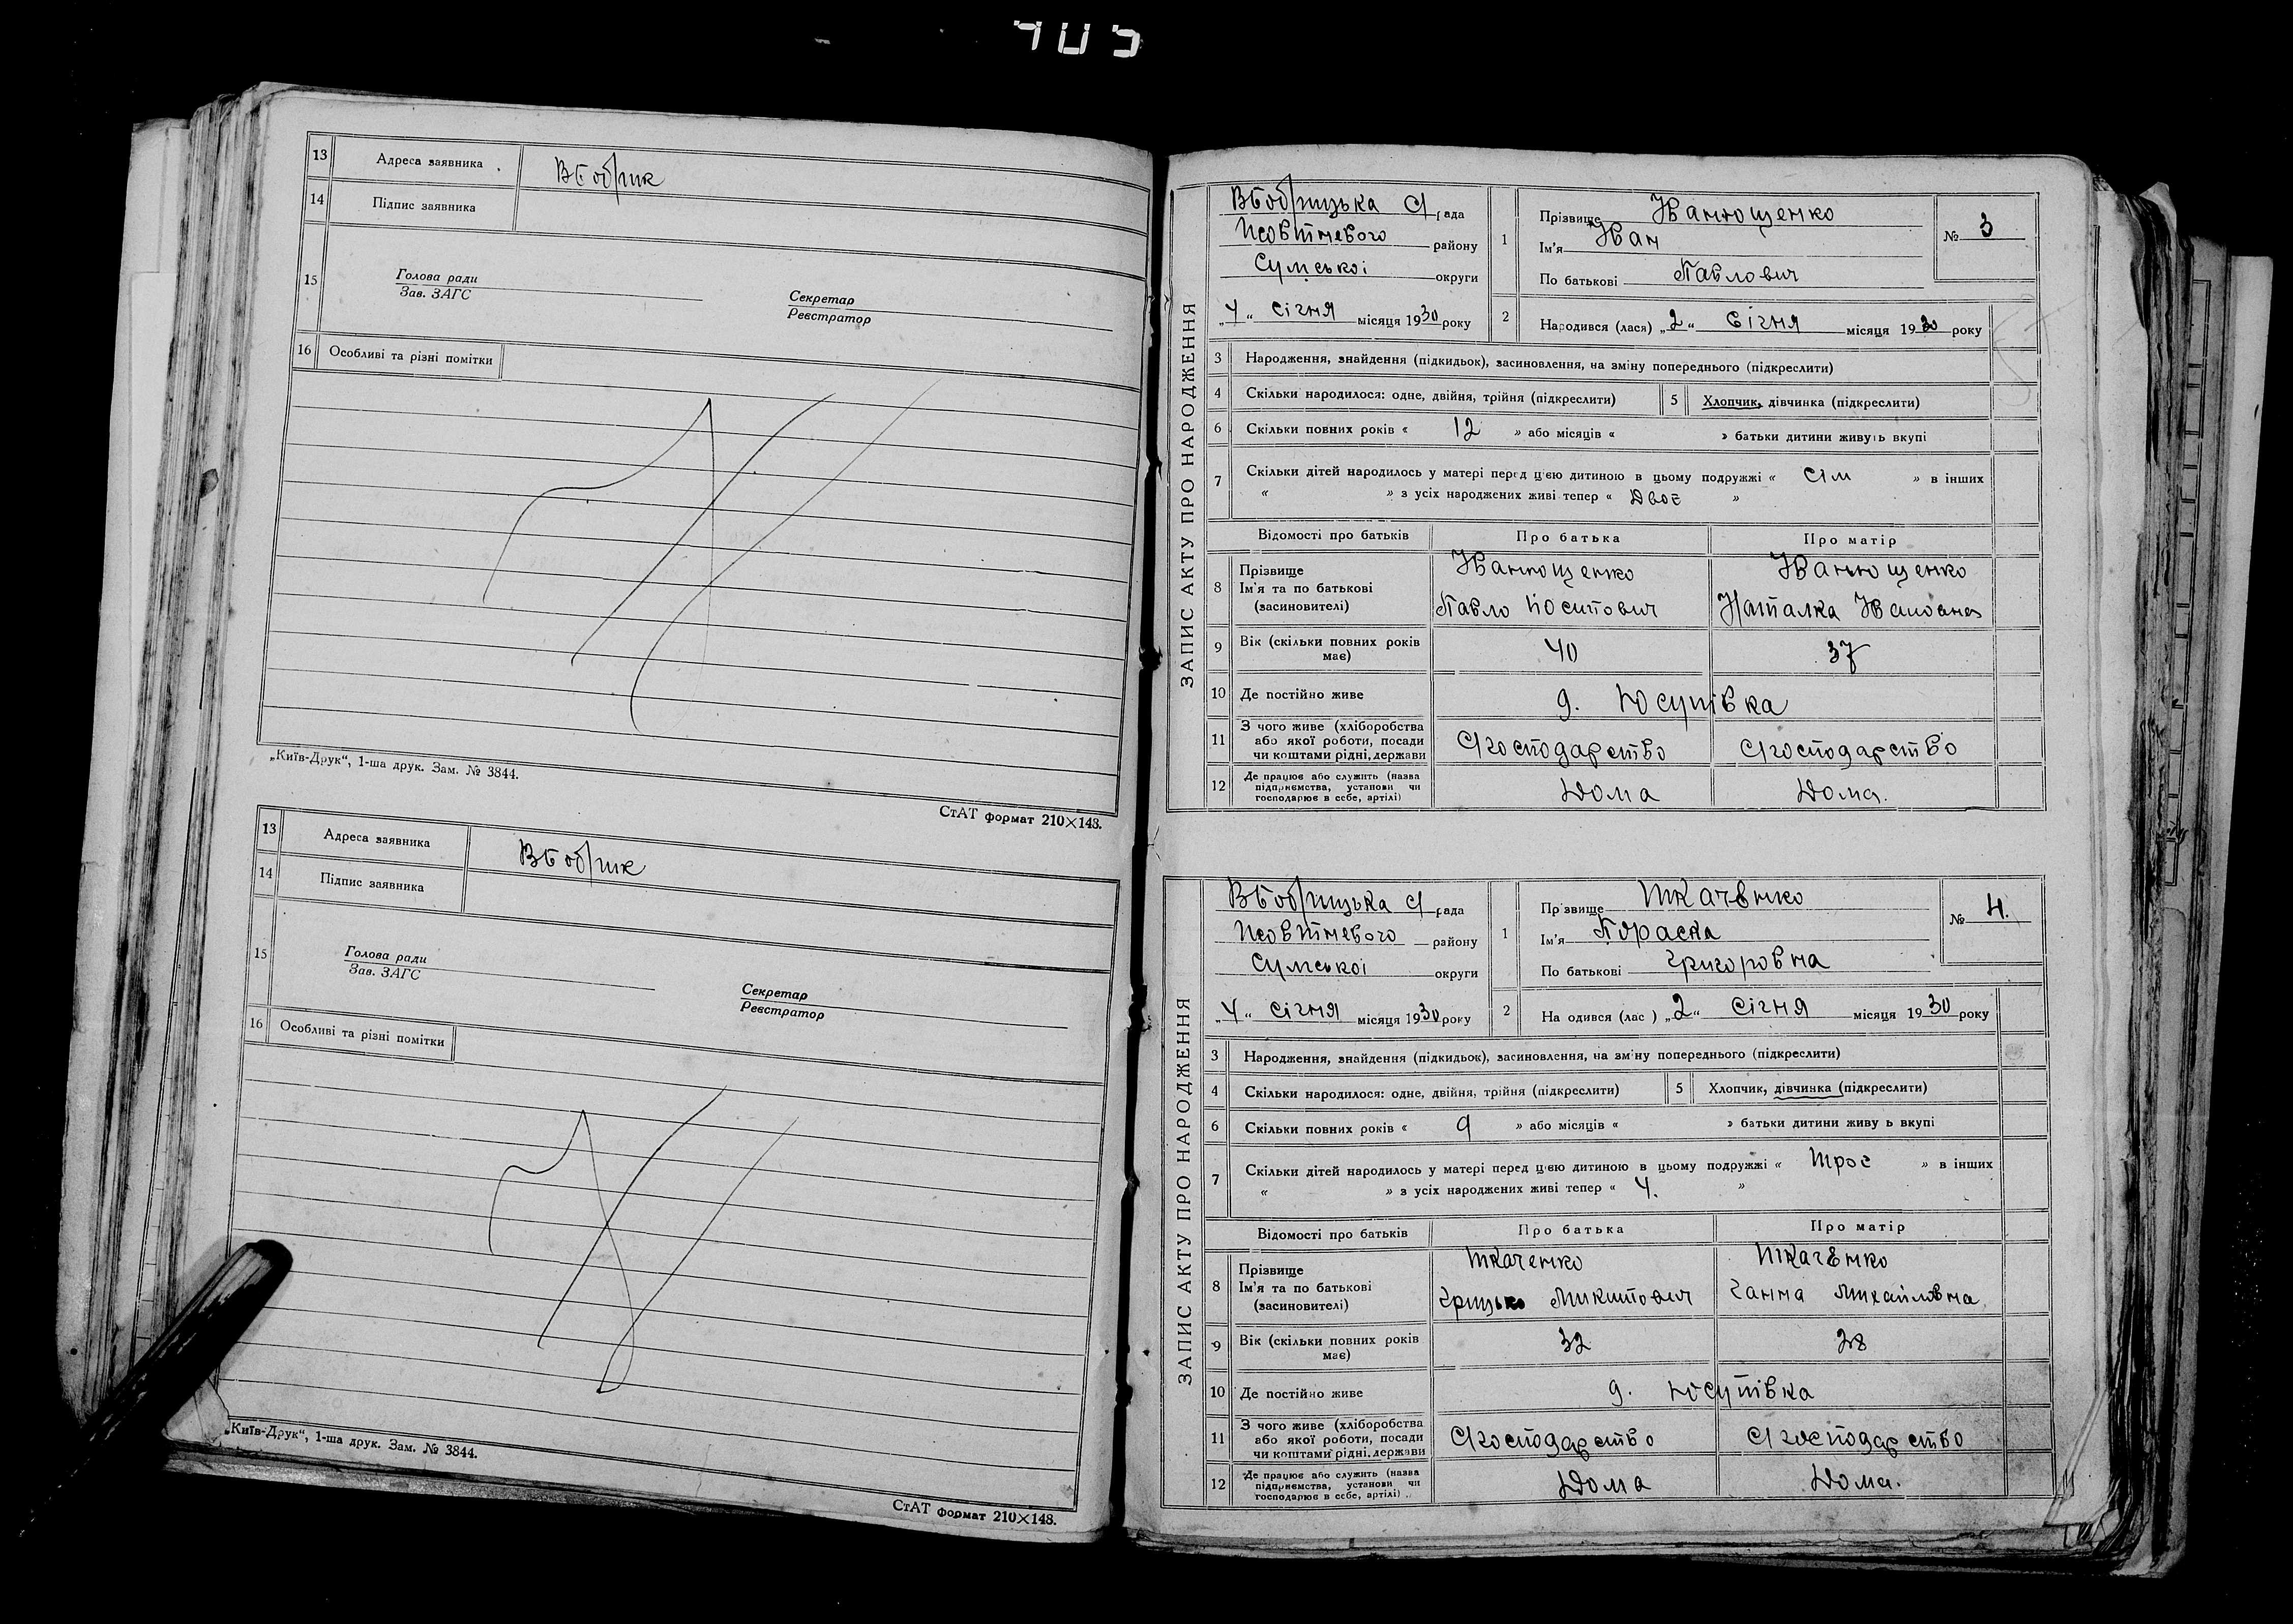 405
13 Адреса заявника ВБобрик
14 Підпис заявника
15 Голова ради
Зав. ЗАГС
Секретар
Реєстратор
16 Особливі та різні помітки
„Київ-Друк“, 1-ша друк. Зам. № 3844.
СтАТ формат 210×148.
13 Адреса заявника ВБобрик
14 Підпис заявника
15 Голова ради
Зав. ЗАГС
Секретар
Реєстратор
16 Особливі та різні помітки
„Київ-Друк“, 1-ша друк. Зам. № 3844.
СтАТ формат 210×148.
ЗАПИС АКТУ ПРО НАРОДЖЕННЯ
ВБобрицька С/рада
району
Сумської округи
„4“ Січня місяця 1930 року
1 Прізвище Іванющенко
Ім'я Іван
По батькові Павлович
№ 3
2 Народився (лася) „2“ Січня місяця 1930 року
3 Народження, знайдення (підкидьок), засиновлення, на зміну попереднього (підкреслити)
4 Скільки народилося: одне, двійня, трійня (підкреслити)
5 Хлопчик, дівчинка (підкреслити)
6 Скільки повних років « 12 » або місяців « » батьки дитини живуть вкупі
7 Скільки дітей народилось у матері перед цією дитиною в цьому подружжі « сім » в інших
« » з усіх народжених живі тепер « Двоє »
Відомості про батьків Про батька Про матір
8 Прізвище Іванющенко Іванющенко
Ім'я та по батькові
(засиновителі) Павло Йосипович Наталка Івановна
9 Вік (скільки повних років має) 40 37
10 Де постійно живе д. Юсупівка
11 З чого живе (хліборобства
або якої роботи, посади
чи коштами рідні, держави С/господарство С/господарство
12 Де працює або служить (назва
підприємства, установи чи
господарює в себе, артілі) Дома Дома.
ЗАПИС АКТУ ПРО НАРОДЖЕННЯ
ВБобрицька С/рада
району
Сумської округи
„4“ Січня місяця 1930 року
1 Прізвище Ткаченко
Ім'я Параска
По батькові Григоровна
№ 4.
2 На одився (лас ) „2“ Січня місяця 1930 року
3 Народження, знайдення (підкидьок), засиновлення, на зміну попереднього (підкреслити)
4 Скільки народилося: одне, двійня, трійня (підкреслити)
5 Хлопчик, дівчинка (підкреслити)
6 Скільки повних років « 9 » або місяців « » батьки дитини живу ь вкупі
7 Скільки дітей народилось у матері перед цією дитиною в цьому подружжі « троє » в інших
« » з усіх народжених живі тепер « 4. »
Відомості про батьків Про батька Про матір
8 Прізвище Ткаченко Ткаченко
Ім'я та по батькові
(засиновителі) Грицько Микитович Ганна Михайловна
9 Вік (скільки повних років має) 32 28
10 Де постійно живе д. Юсупівка
11 З чого живе (хліборобства
або якої роботи, посади
чи коштами рідні, держави С/господарство С/господарство
12 Де працює або служить (назва
підприємства, установи чи
господарює в себе, артілі) Дома Дома.